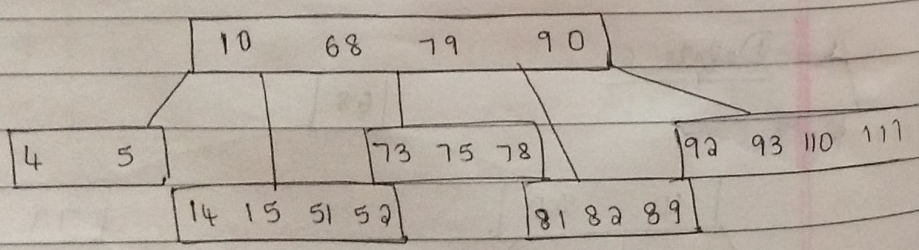 10 68 79 90
4 5
73 75 78
92 93 110 111
14 15 51 52
81 82 89